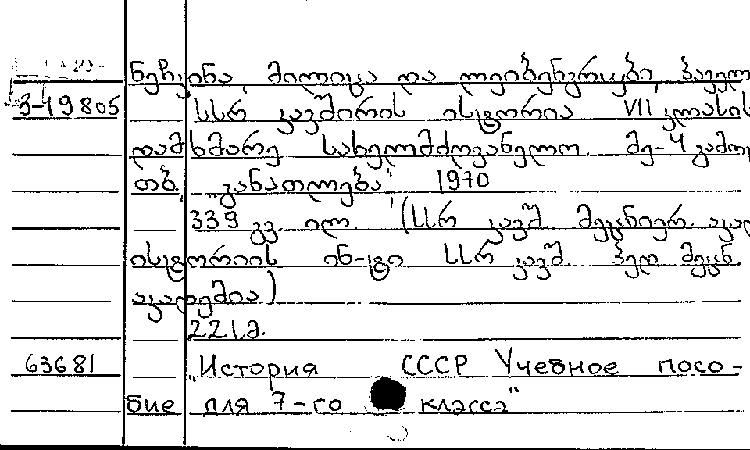 ნეჩკინა, მილიცა და ლეიბენგრუბი, პაველ
3-19805 სსრ კავშირის ისტორია VII კლასის
დამხმარე სახელმძღვანელო. მე-4 გამოც
თბ., „განათლება“, 1970
339 გვ. ილ. (სსრ კავშ. მეცნიერ. აკად
ისტორიის ინ-ტი სსრ კავშ. პედ. მეცნ.
აკადემია)
63681 „История СССР Учебное посо-
бие для 7-го класса“